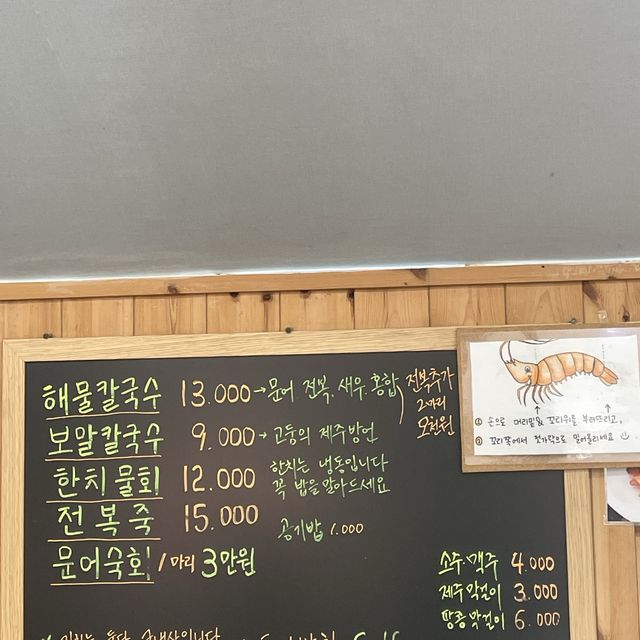 해물칼국수 13.000→문어 전복.새우.홍합
전복추가
2마리
오천원
보말칼국수 9.000→고동의 제주방언
한치물회 12.000
한치는 냉동입니다
꼭 밥을 말아드세요
전복죽 15.000
공기밥 1.000
문어숙회/마리 3만원
소주.맥주 4.000
제주막걸이 3.000
땅콩막걸이 6.000
① 손으로 머리밑& 꼬리위를 부러뜨리고,
② 꼬리쪽에서 젓가락으로 밀어올리세요